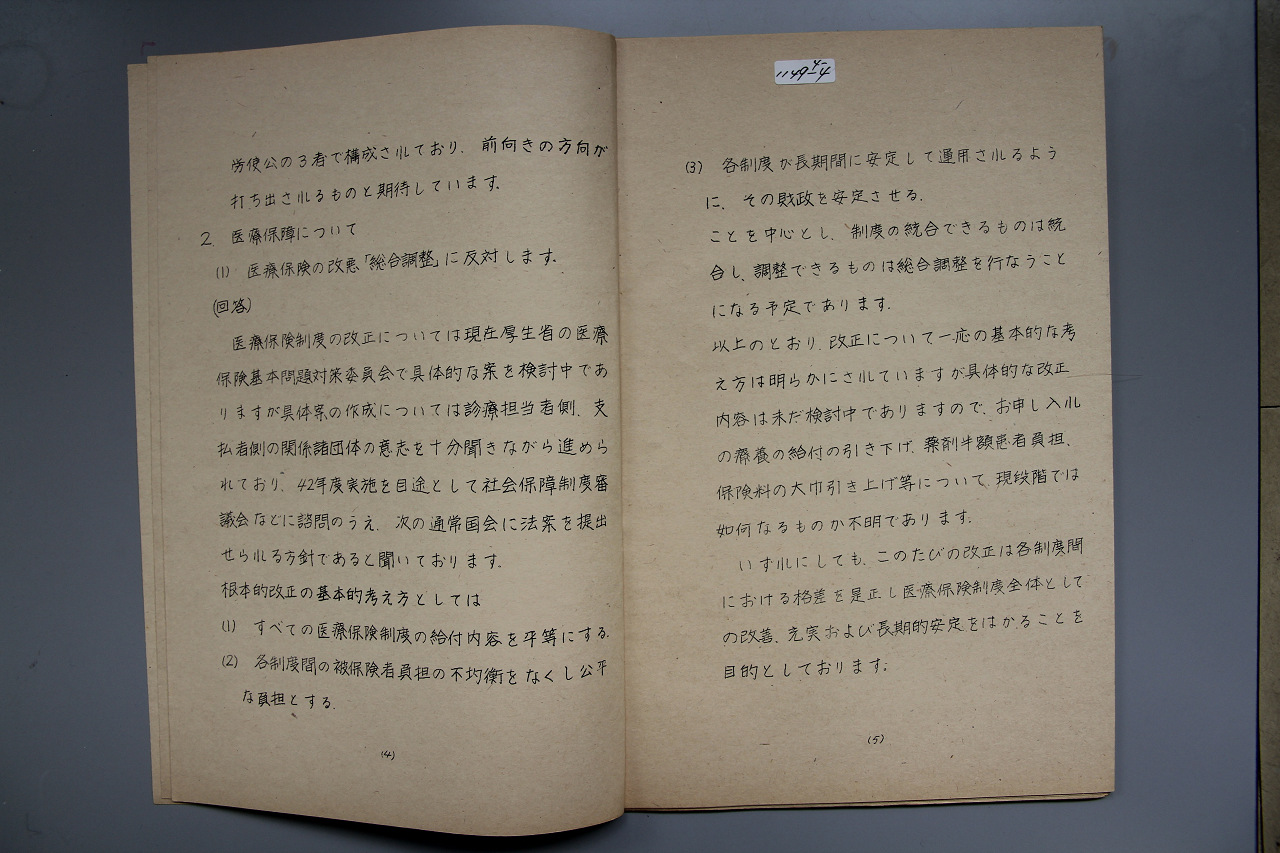 労使公の3者で構成されており、前向きの方向が
打ち出されるものと期待しています。
2. 医療保障について
(1) 医療保険の改悪「総合調整」に反対します。
(回答)
医療保険制度の改正については現在厚生省の医療
保険基本問題対策委員会で具体的な案を検討中であ
りますが具体案の作成については診療担当者側、支
払者側の関係諸団体の意志を十分聞きながら進めら
れており、42年度実施を目途として社会保障制度審
議会などに諮問のうえ、次の通常国会に法案を提出
せられる方針であると聞いております。
根本的改正の基本的考え方としては
(1) すべての医療保険制度の給付内容を平等にする。
(2) 各制度間の被保険者負担の不均衡をなくし公平
な負担とする。
(4)
1149-4-4
(3) 各制度が長期間に安定して運用されるよう
に、その財政を安定させる。
ことを中心とし、制度の統合できるものは統
合し、調整できるものは総合調整を行なうこと
になる予定であります。
以上のとおり、改正について一応の基本的な考
え方は明らかにされていますが具体的な改正
内容は未だ検討中でありますので、お申し入れ
の療養の給付の引き下げ、薬剤半額患者負担、
保険料の大巾引き上げ等について、現段階では
如何なるものか不明であります。
いずれにしても、このたびの改正は各制度間
における格差を是正し医療保険制度全体として
の改善、充実および長期的安定をはかることを
目的としております。
(5)